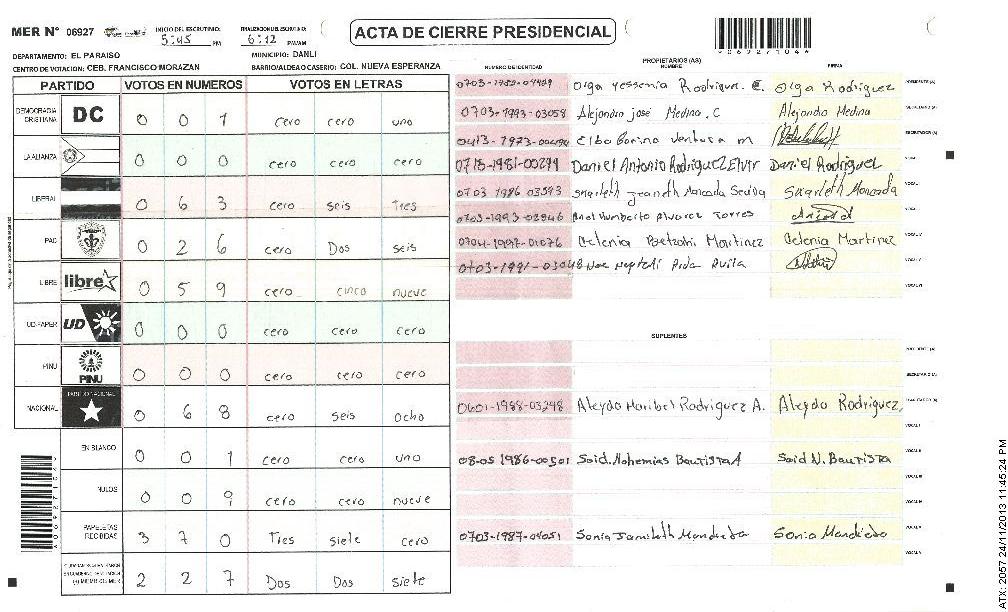 MER N° 06927 INICIO DEL ESCRUTINIO: 5:45 PM FINALIZACION DEL ESCRUTINIO: 6:12 PM/AM
ACTA DE CIERRE PRESIDENCIAL
069271044
DEPARTAMENTO: EL PARAISO MUNICIPIO: DANLI
CENTRO DE VOTACION: CEB. FRANCISCO MORAZAN BARRIO/ALDEA O CASERIO: COL. NUEVA ESPERANZA
PARTIDO VOTOS EN NUMEROS VOTOS EN LETRAS
DEMOCRACIA CRISTIANA DC 0 0 1 cero cero uno
LA ALIANZA 0 0 0 cero cero cero
LIBERAL 0 6 3 cero seis Tres
PAC 0 2 6 cero Dos seis
LIBRE libre 0 5 9 cero cinco nueve
UD-FAPER UD 0 0 0 cero cero cero
PINU PINU 0 0 0 cero cero cero
NACIONAL PARTIDO NACIONAL 0 6 8 cero seis ocho
EN BLANCO 0 0 1 cero cero uno
NULOS 0 0 9 cero cero nueve
PAPELETAS RECIBIDAS 3 7 0 Tres siete cero
2 2 7 Dos Dos siete
PROPIETARIOS (AS)
NUMERO DE IDENTIDAD NOMBRE FIRMA
Olga Yessenia Rodrigue. E. Olga Rodriguez PRESIDENTE (A)
0703-1993-03058 Alejandro josé Medina . C Alejandro Medina SECRETARIO (A)
Elba Corina Ventura m ESCRUTADOR (A)
0713-1981-00299 Daniel Antonio Rodriguez Elvir Daniel Rodriguez
0703 1986 03593 Skarleth Jeaneth Moncada Skarleth Moncada
Humberto Alvarez Torres
Celenia Betzahi Martinez Celenia Martinez
0703-1991-03048 Noe Neptali Avila
SUPLENTES
0601-1988-03298 Aleyda Maribel Rodriguez A. Aleyda Rodriguez,
08-05 1986-00501 Said. Nohemias Bautista A Said N. Bautista
0703-1987-04051 Sonia
ATX: 2057 24/11/2013 11:45:24 PM